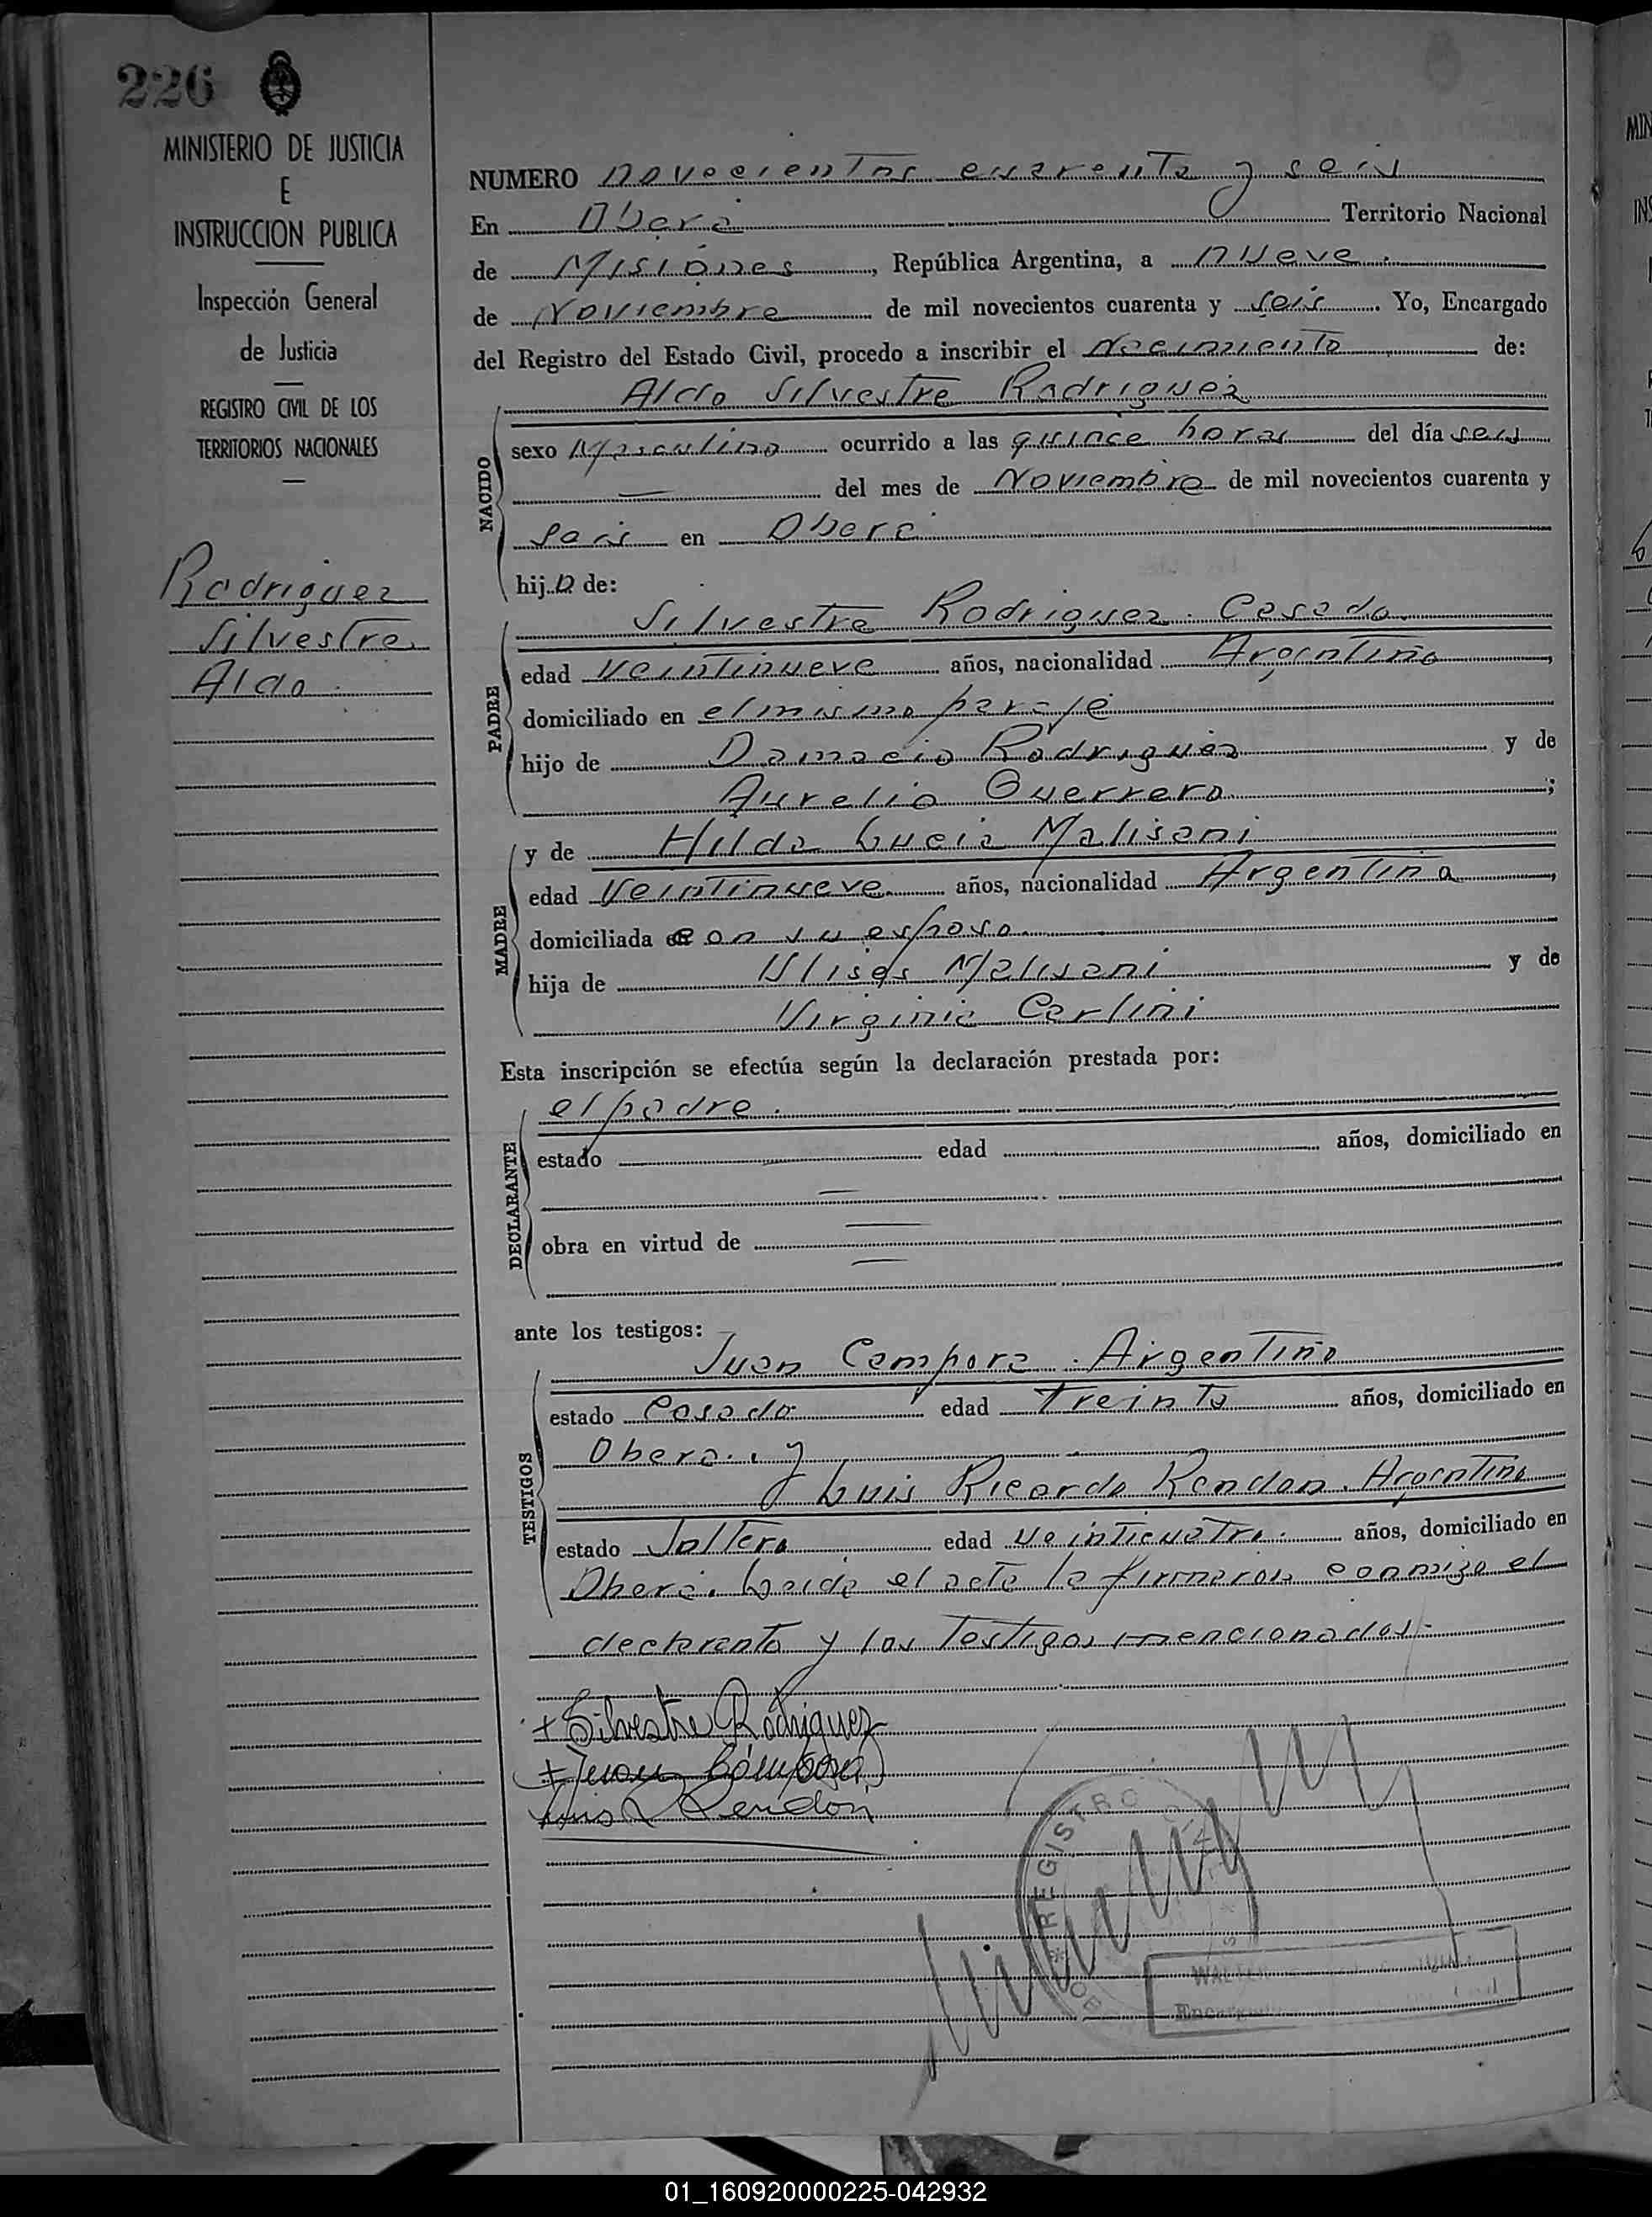 226
MINISTERIO DE JUSTICIA
E
INSTRUCCION PUBLICA
Inspección General
de Justicia
REGISTRO CIVIL DE LOS
TERRITORIOS NACIONALES
Rodriguez
Silvestre
Aldo
NUMERO novecientos cuarenta y seis
En Oberá Territorio Nacional
de Misiones, República Argentina, a nueve
de Noviembre de mil novecientos cuarenta y seis. Yo, Encargado
del Registro del Estado Civil, procedo a inscribir el Nacimiento de:
Aldo Silvestre Rodriguez
NACIDO
sexo Masculino ocurrido a las quince horas del día seis
— del mes de Noviembre de mil novecientos cuarenta y
seis en Oberá
hijo de:
Silvestre Rodriguez. Casado.
PADRE
edad veintinueve años, nacionalidad Argentino,
domiciliado en el mismo paraje
hijo de Damacio Rodriguez y de
Aurelia Guerrero;
y de Hilda Lucia Malisani
MADRE
edad Veintinueve años, nacionalidad Argentina,
domiciliada con su esposo.
hija de Ulises Malisani y de
Virginia Carlini
Esta inscripción se efectúa según la declaración prestada por:
el padre.
DECLARANTE
estado edad años, domiciliado en
—
obra en virtud de —
—
ante los testigos:
Juan Campora. Argentino
TESTIGOS
estado Casado edad treinta años, domiciliado en
Oberá. y
Luis Ricardo Rendon. Argentino
estado Soltero edad veinticuatro. años, domiciliado en
Oberá. Leída el acta la firmaron conmigo el
declarante y los testigos mencionados.-
+ Silvestre Rodriguez
+ Juan Cámpora
Luis R Rendon
REGISTRO
WALTER
Encargado
01_160920000225-042932